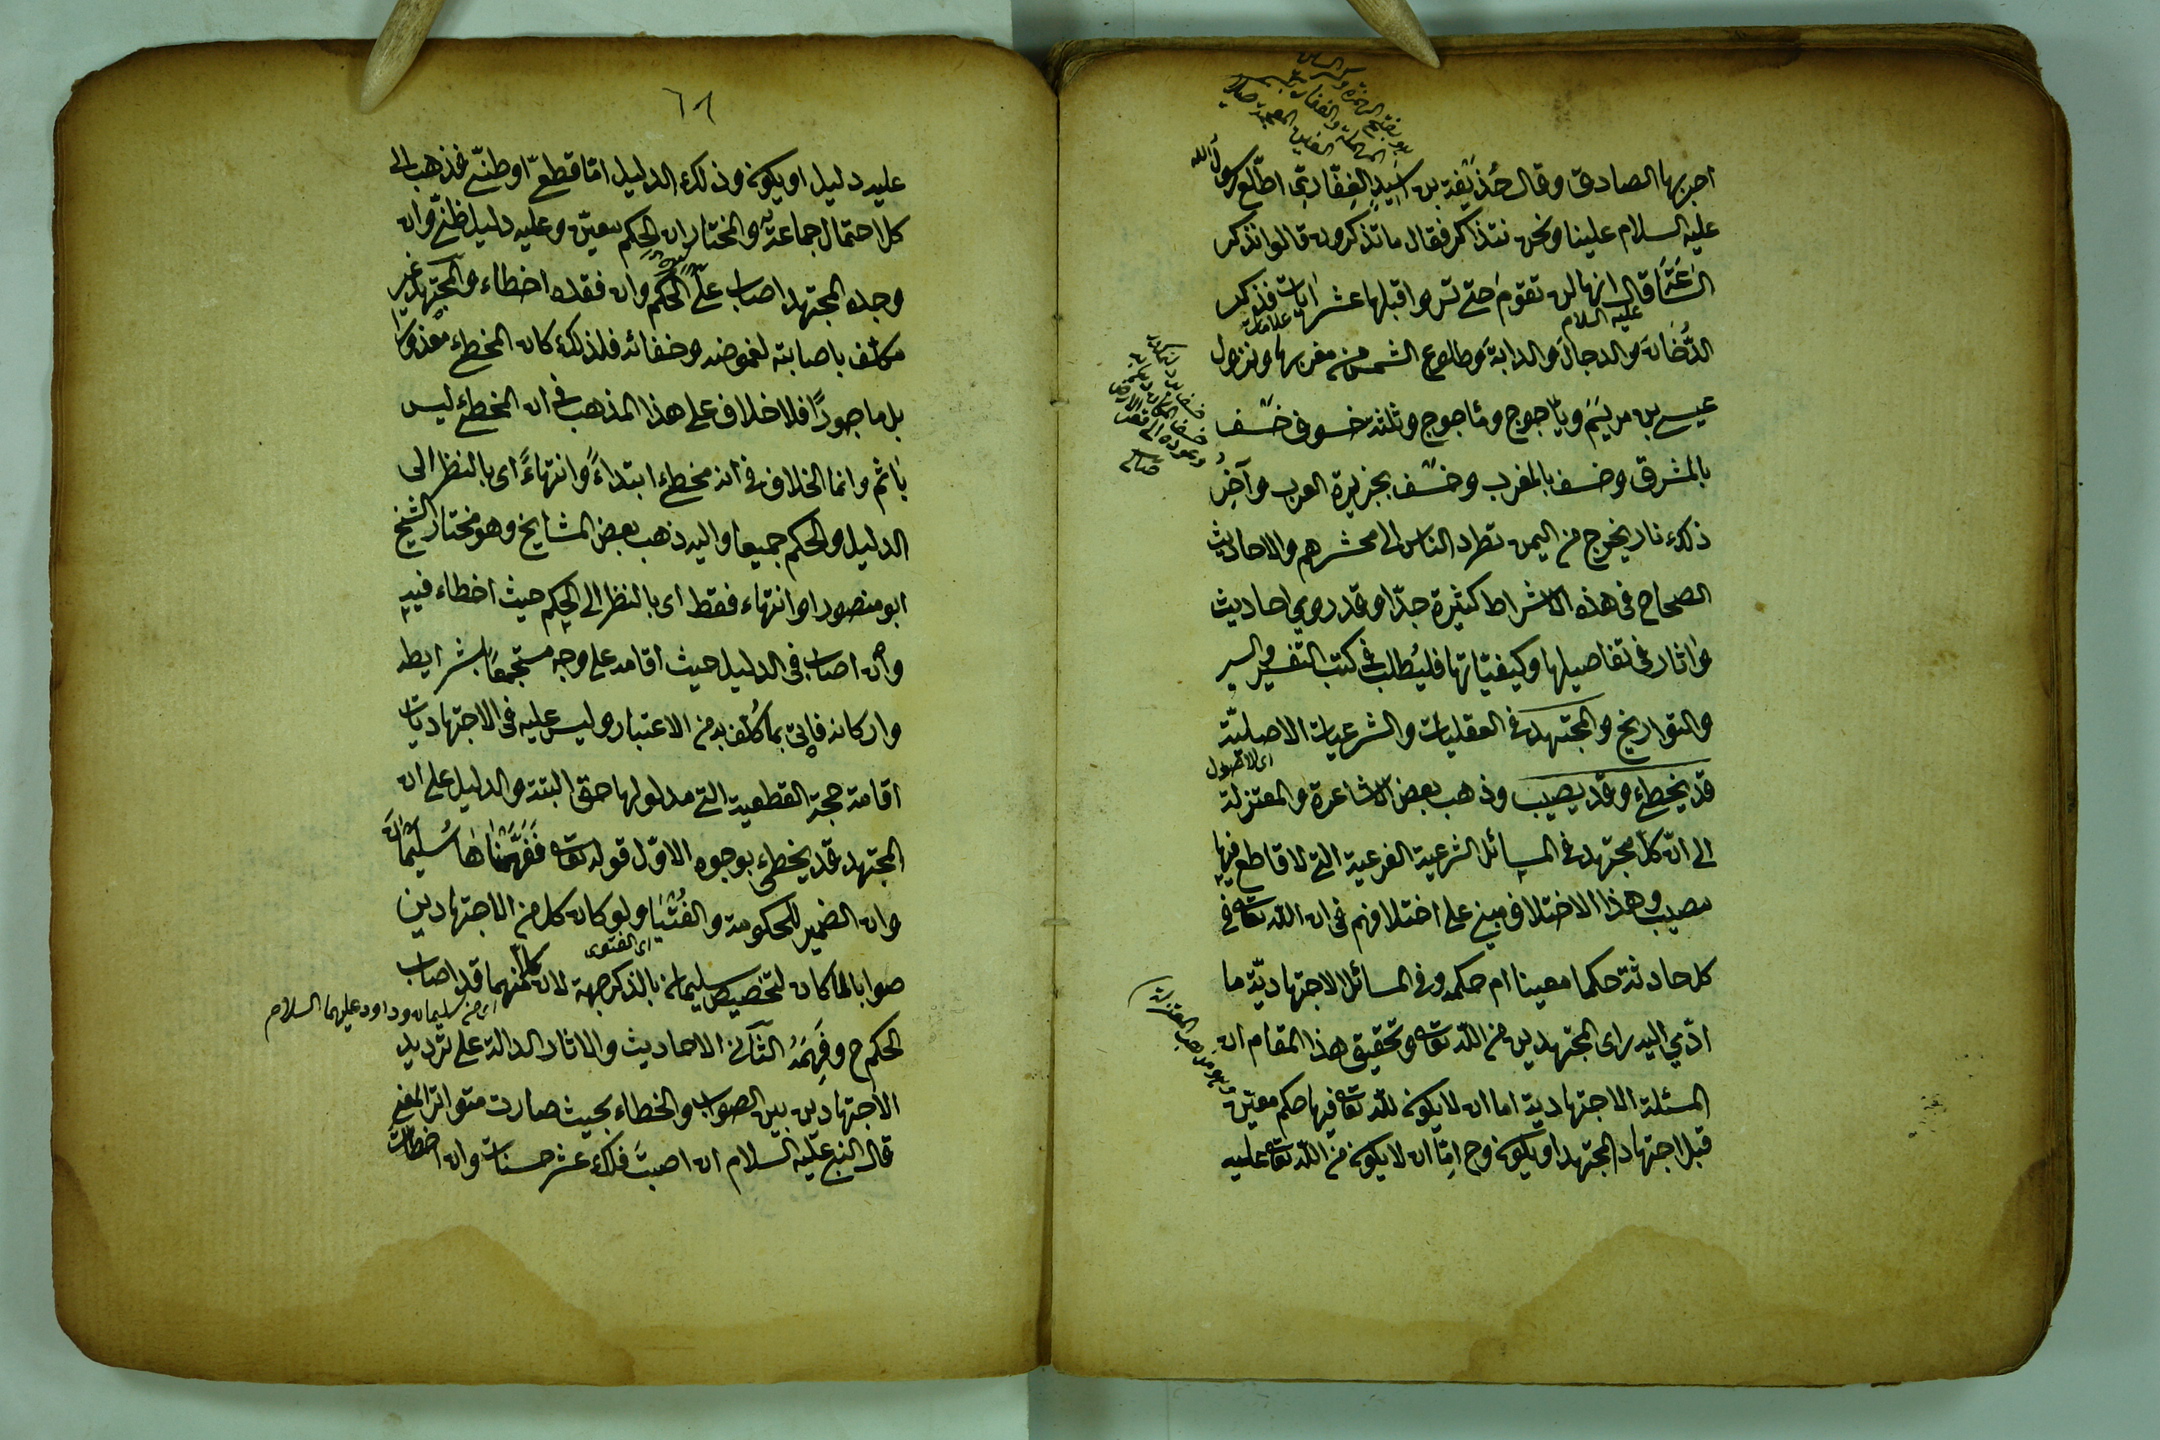 اخبر بها الصادق وقال حُذيفة بن اَسِيدِ الغِفّاريّ اطّلع رسول الله
عليه السلام علينا ونحن نتذاكر فقال ما تذكرون قالوا نذكر
السّاعَةَ قال انها لن تقومَ حتى تروا قبلها عشر ايات فذكر
عليه السلام
علامات
الدُّخانَ والدجالَ والدابةَ وطلوع الشمس من مغربها ونزول
عيسى بن مريَمَ ويأجوج ومأجوج وثلثة خسوف خسْف
بالمشرق وخسف بالمغرب وخسْف بجزيرة العرب وآخِرُ
ذلك نار يخرج من اليمن تطرد الناس الى محشرهم والاحاديث
الصحاح فى هذه الاشراط كثيرة جدّا وقد روي احاديث
واثار فى تفاصيلها وكيفيّاتها فليُطلب فى كتب التفسير والسير
والتواريخ والمجتهد فى العقليات والشرعيات الاصليّة
اى الاصول
قد يخطئ وقد يصيب وذهب بعض الاشاعرة والمعتزلة
الى انّ كل مجتهد فى المسائل الشرعية الفرعية التى لا قاطع فيها
مصيب وهذا الاختلاف مبنى على اختلافهم فى ان الله تعالى فى
كل حادثة حكما معينا ام حكمه فى المسائل الاجتهاديّة ما
ادّي اليه راى المجتهدين من الله تعالى وتحقيق هذا المقام ان
وهو مذهب المعتزلة
المسئلة الاجتهادية اما ان لا يكون لله تعالى فيها حكم معيّن
قبل اجتهاد المجتهد او يكون وح امّا ان لا يكون من الله تعالى عليه
٦٨
عليه دليل او يكون وذلك الدليل امّا قطعىّ او ظنّى فذهب الى
كل احتمال جماعة والمختار ان الحكم معيّن وعليه دليل ظنّى وان
وجده المجتهد اصاب على الحكم وان فقده اخطاء والمجتهد غير
مكلّف باصابته لغموضه وخفائه فلذلك كان المخطئ معذورًا
بل ماجورًا فلا خلاف على هذا المذهب فى ان المخطئ ليس
بٰاثم وانما الخلاف فى انه مخطئ ابتداءً وانتهاءً اى بالنظر الى
الدليل والحكم جميعا واليه ذهب بعض المشايخ وهو مختار الشيخ
ابو منصور او انتهاء فقط اى بالنظر الى الحكم حيث اخطاء فيه
وان اصاب فى الدليل حيث اقامه على وجه مستجمعًا بشرايطه
واركانه فاتى بما كُلّف به من الاعتبار وليس عليه فى الاجتهاديات
اقامة حجة القطعية التى مدلولها حق البتة والدليل على ان
المجتهد قد يخطئ بوجوه الاوّل قوله تعالى فَفَهَّمْنٰاهٰا سُلَيْمٰانَ
وان الضمير للحكومة والفُتْيٰا ولو كان كل من الاجتهادين
اى الفتوى
صوابا لما كان لتخصيص سليمان بالذكر جهة لان كلا منهما قد اصاب
اى من سليمان وداود عليهما السلام
الحكم ح وفَهِمَهُ الثّانى الاحاديث والاثار الدالة على ترديد
الاجتهادين بين الصواب والخطاء بحيث صارت متواتر المعنى
قال النبى عليه السلام ان اصبتَ فلك عشر حسنات وان اخطأتَ